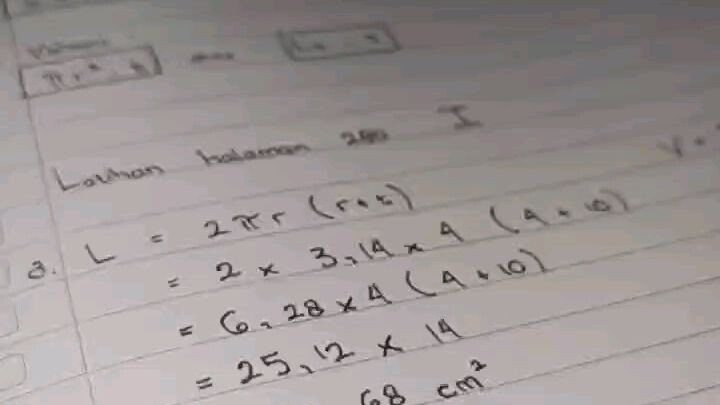 Volume
πr² . t atau La . t
Latihan halaman 290 I
V =
a. L = 2πr (r+t)
= 2 x 3,14 x 4 (4 + 10)
= 6,28 x 4 (4 + 10)
= 25,12 x 14
68 cm²